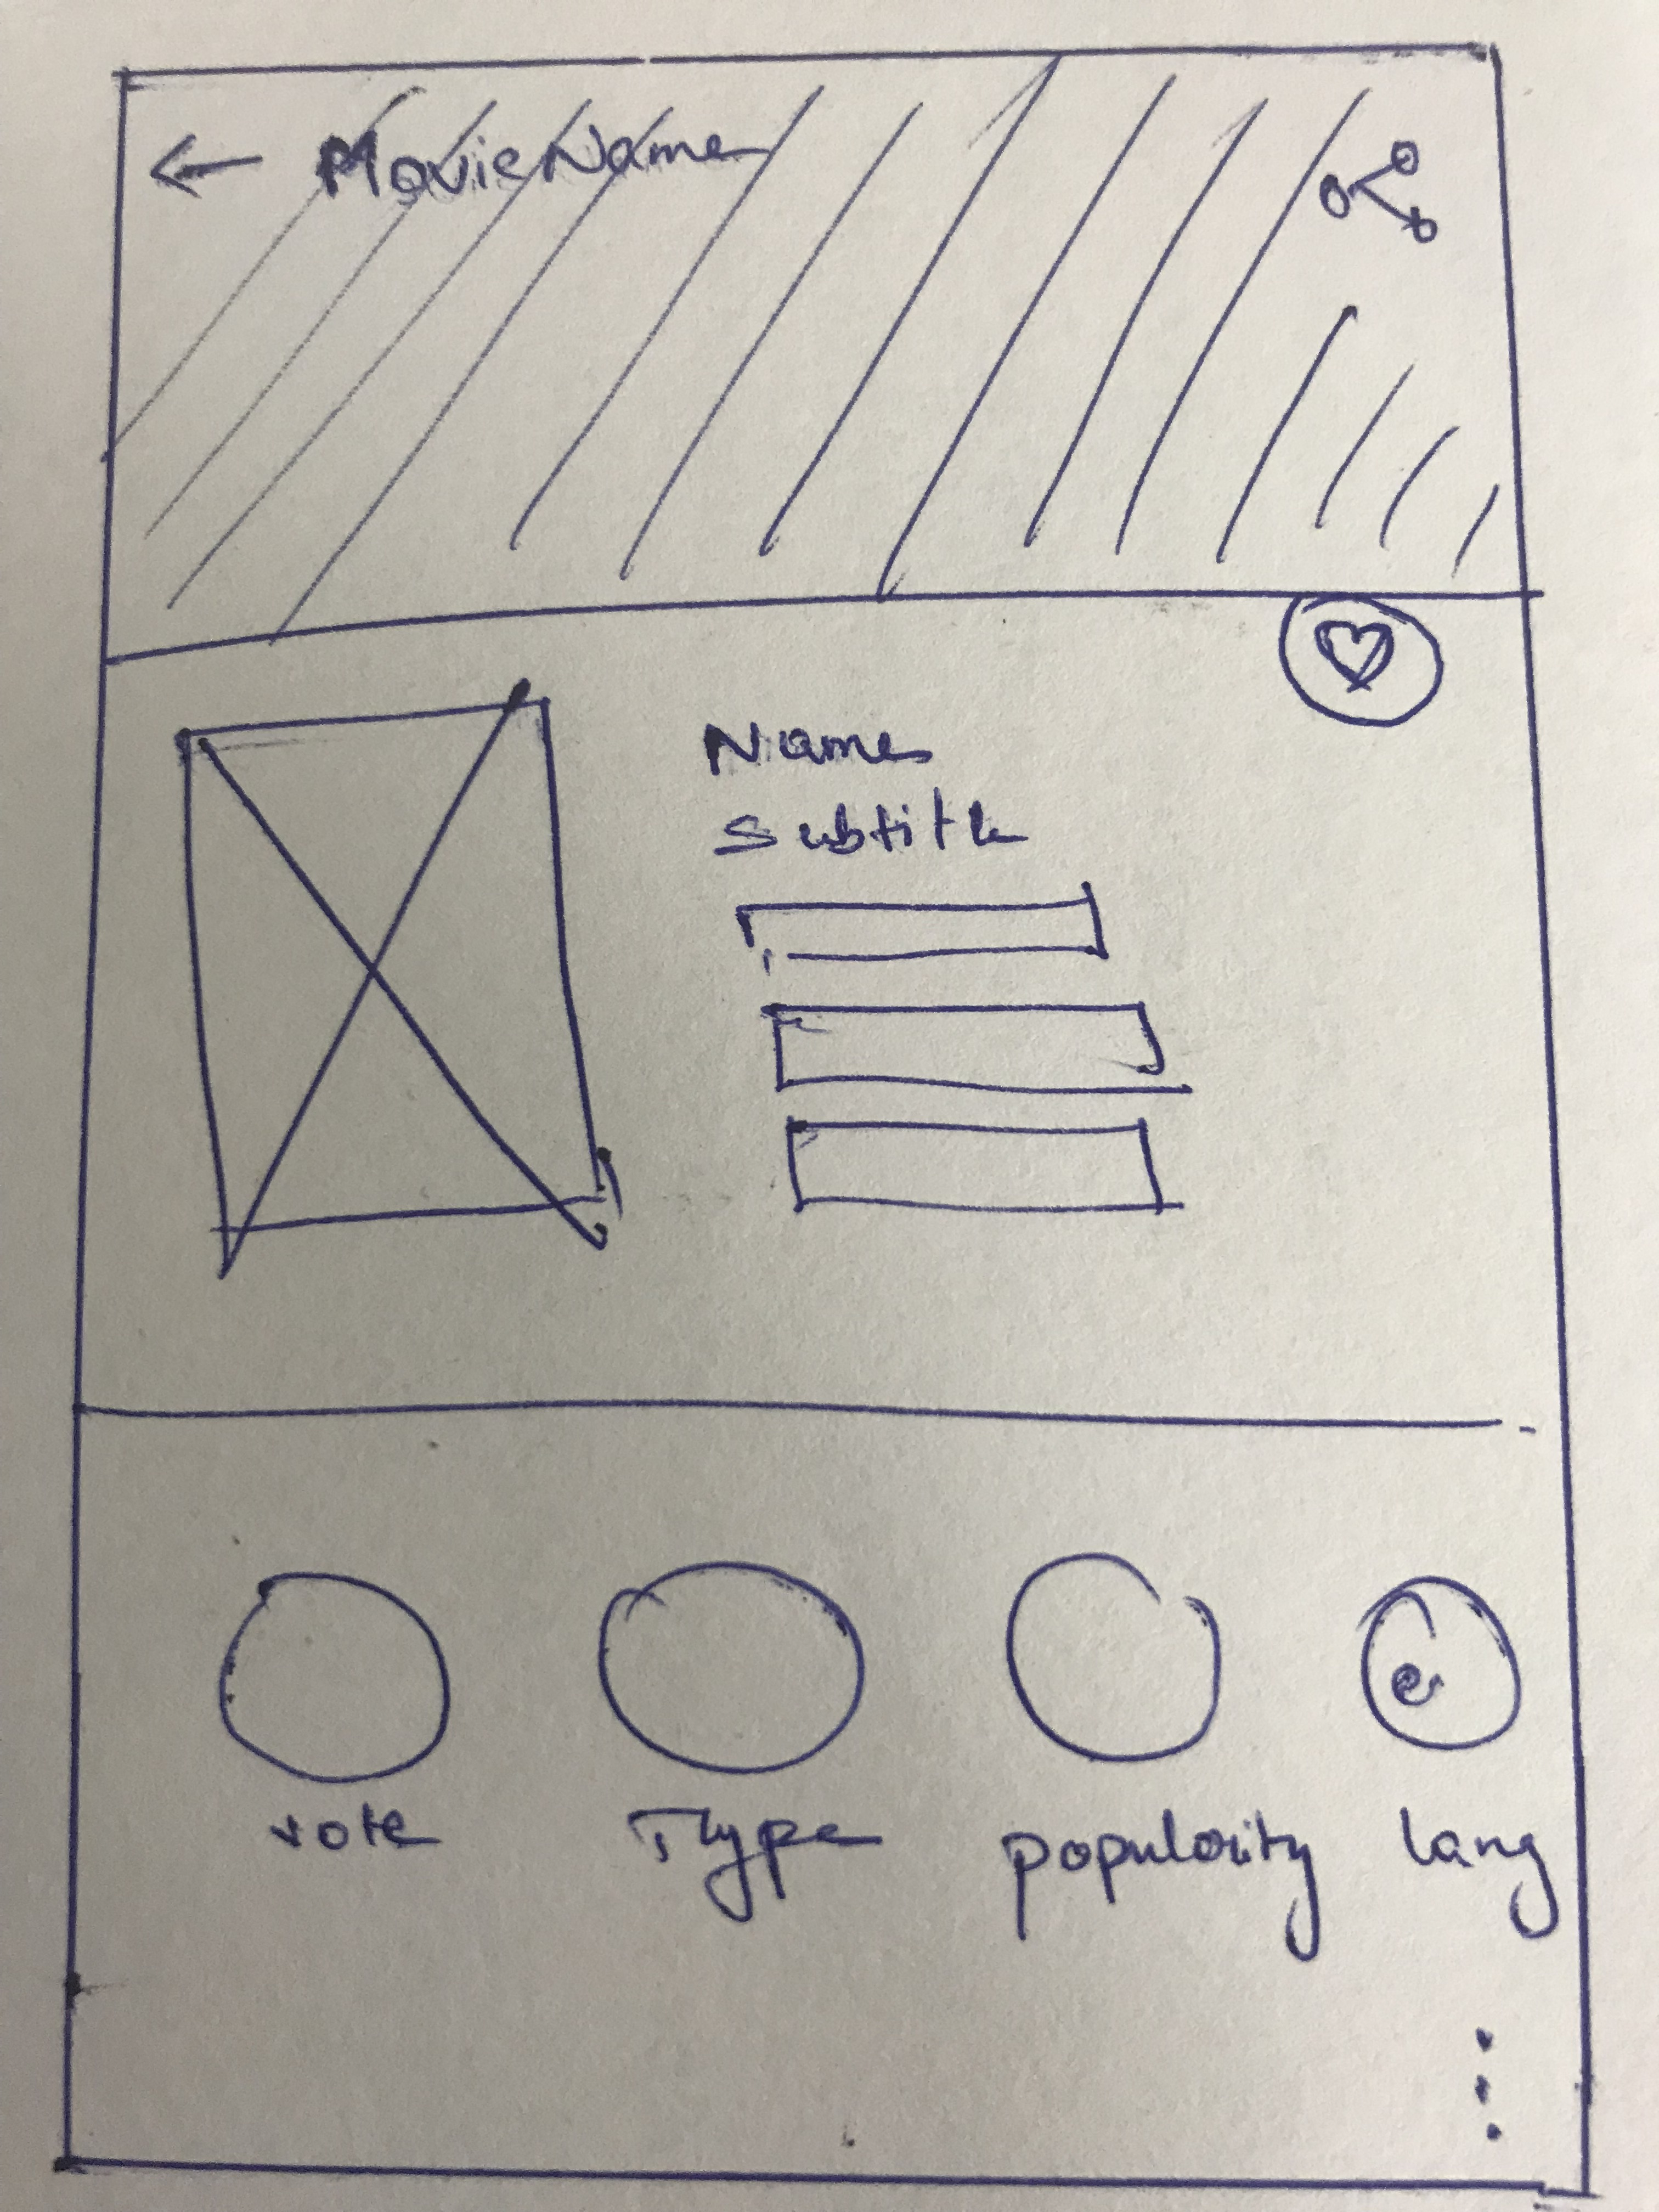 ← Movie Name
Name
Subtitle
vote Type popularity lang